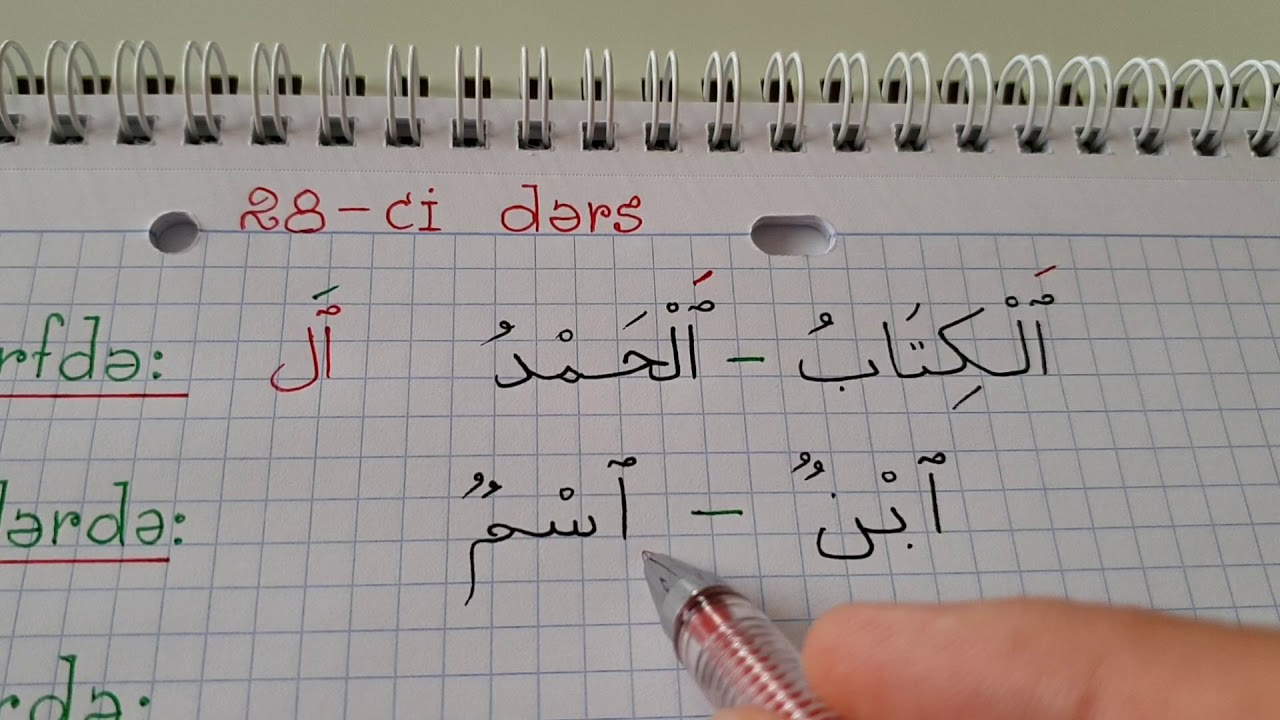 28-ci dərs
rfdə: ٱَلْ ٱَلْحَمْدُ - ٱَلْكِتَابُ
lərdə: ٱسْمٌ - ٱبْنٌ
rdə: